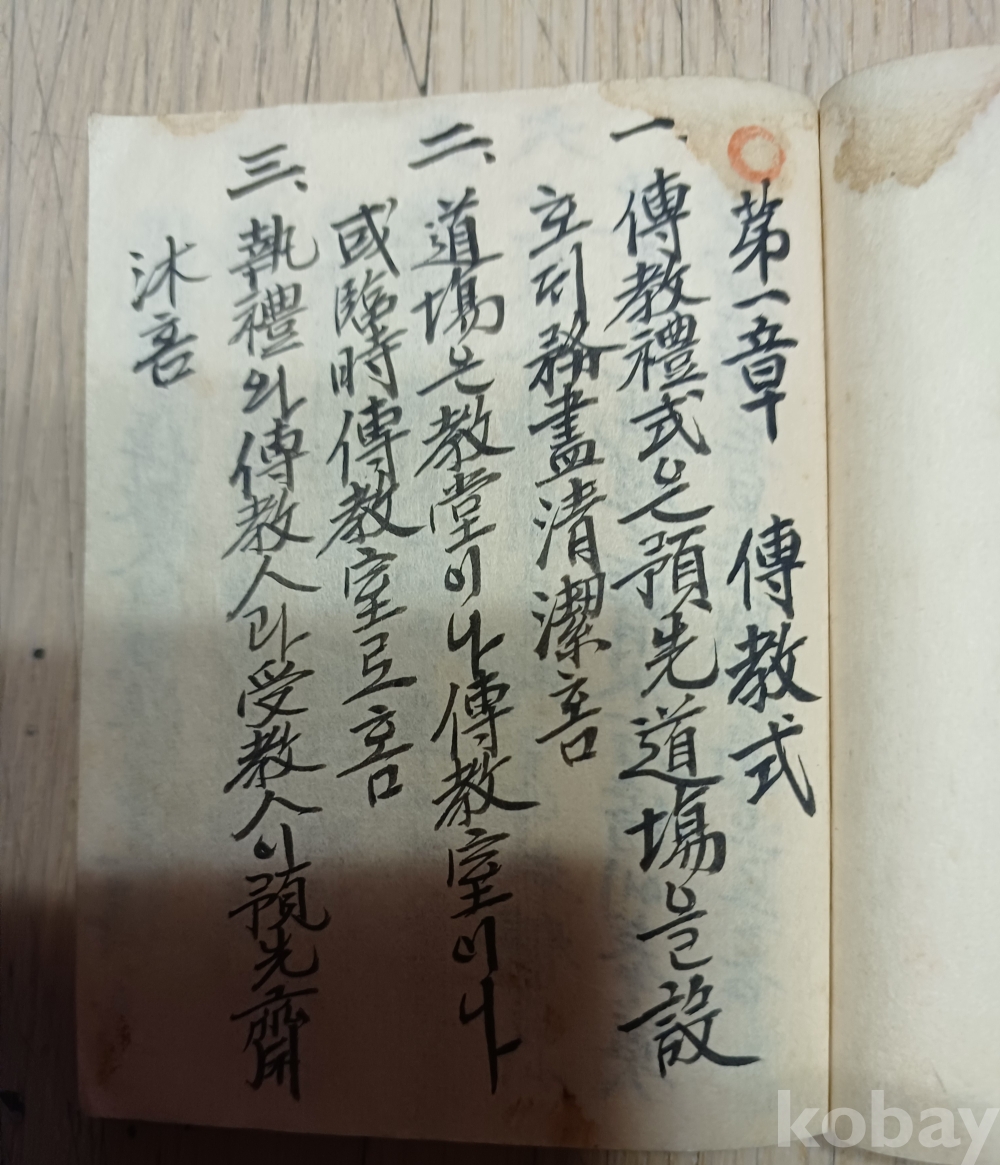 第一章 傳教式
一、傳教禮式은預先道場을設
호되務盡清潔홈
二、道場은教堂이나傳教室이나
或臨時傳教室로홈
三、執禮와傳教人과受教人이預先齋
沐홈
kobay